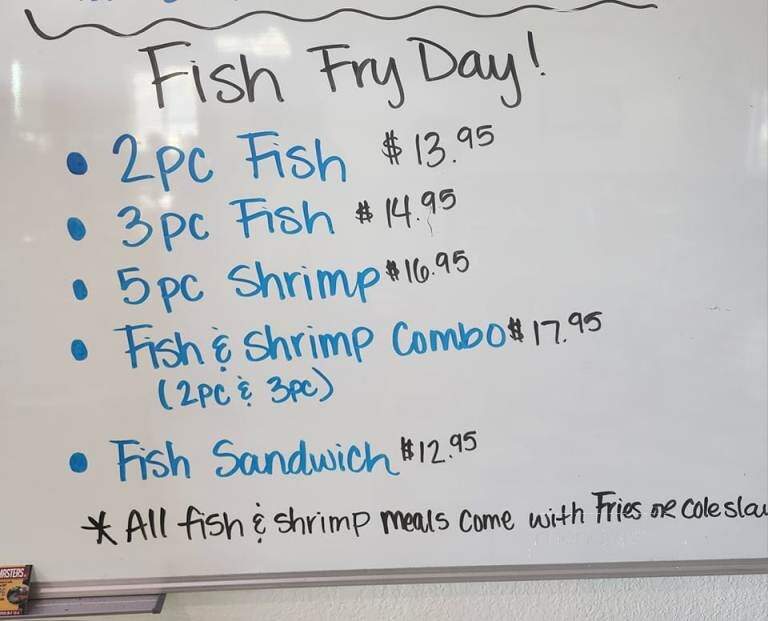 Fish Fry Day!
• 2pc Fish $13.95
• 3pc Fish $14.95
• 5pc Shrimp $16.95
• Fish & Shrimp Combo $17.95
(2pc & 3pc)
• Fish Sandwich $12.95
* All fish & shrimp meals come with Fries or coleslaw